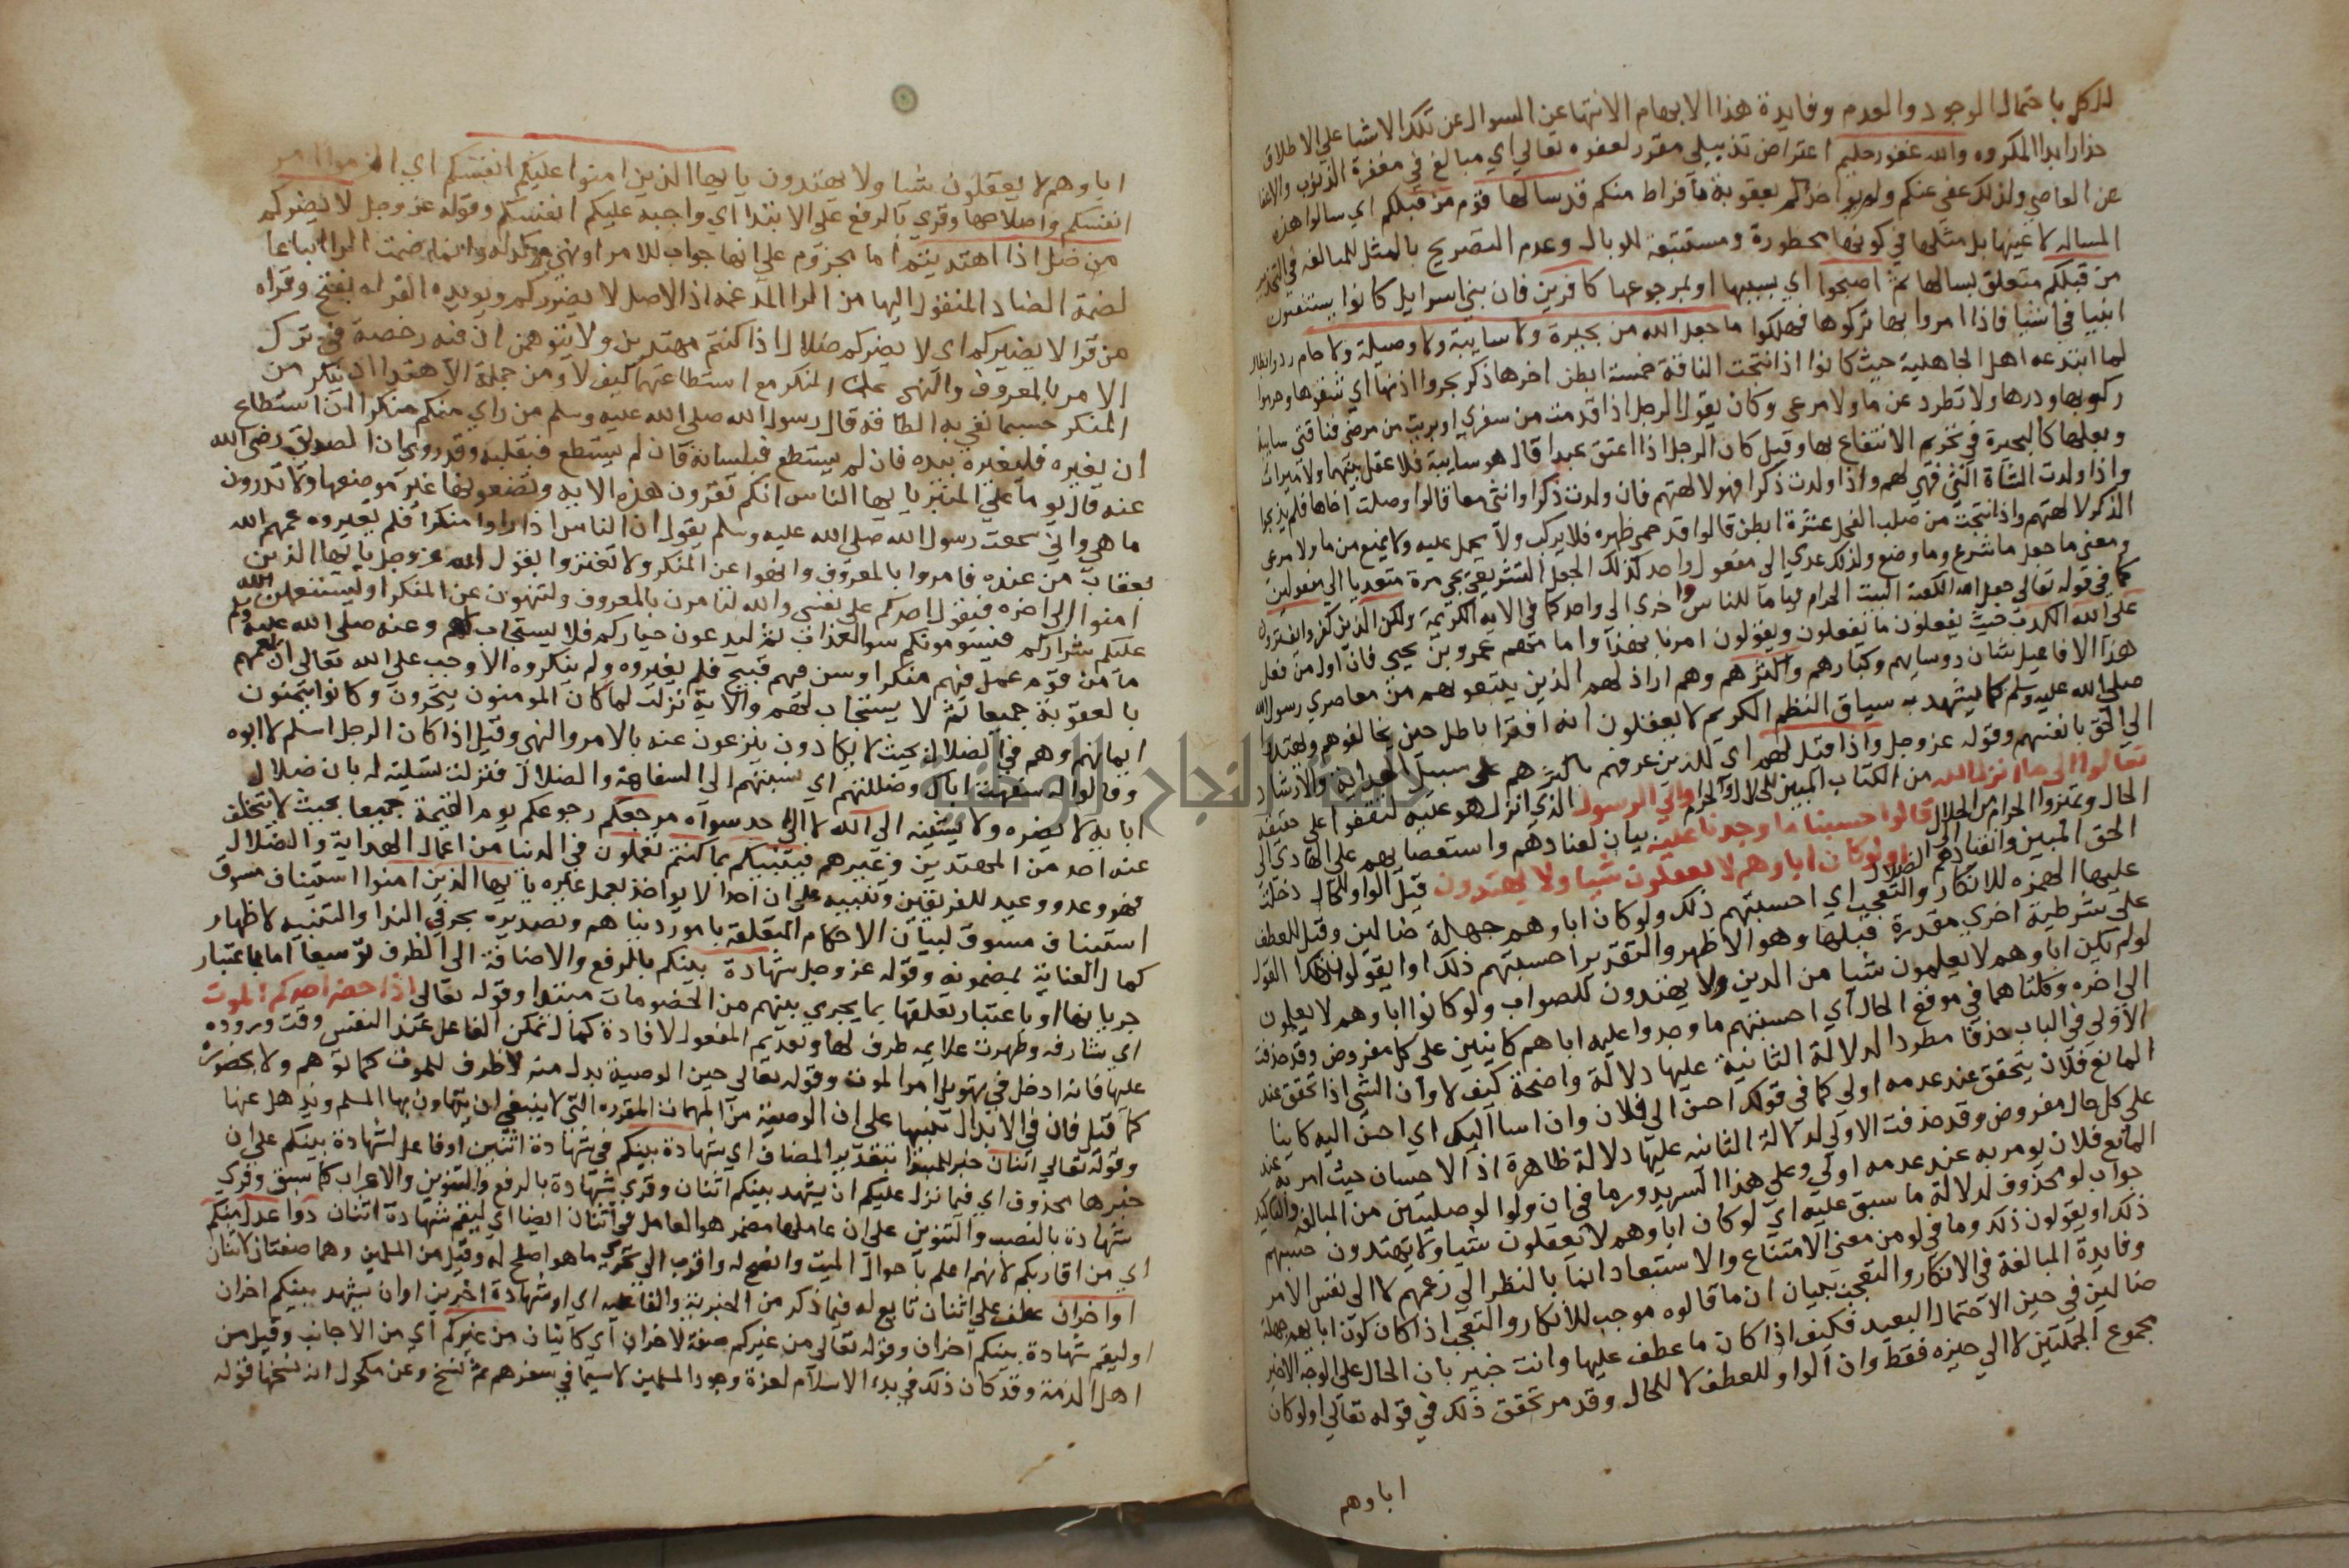 للكل باحتمال الوجود والعدم وفايدة هذا الابهام الانتها عن السوال عن تلك الاشيا على الاطلاق
حذار ابدا المكروه والله غفور حليم اعتراض تذييلي مقرر لعفوه تعالى اي مبالغ في مغفرة الذنوب والاغضا
عن المعاصي ولذلك عفى عنكم ولم يواخذكم بعقوبة ما فرط منكم قد سالها قوم من قبلكم اي سالوا هذه
المساله لا عينها بل مثلها في كونها محظورة ومستتبعة للوبال وعدم التصريح بالمثل للمبالغه في التحذير
من قبلكم متعلق بسالها ثم اصبحوا اي بسببها او بمرجوعها كافرين فان بني اسرايل كانوا يستفتون
انبيا في اشيا فاذا امروا بها تركوها فهلكوا ما جعل الله من بحيرة ولا سايبة ولا وصيلة ولا حام رد وابطال
لما ابتدعه اهل الجاهلية حيث كانوا اذا نتجت الناقة خمسة ابطن اخرها ذكر بحروا اذنها اي شقوها وحرموا
ركوبها ودرها ولا تطرد عن ما ولا مرعى وكان يقول الرجل اذا قدمت من سفري او بريت من مرضي فناقتي سايبة
وجعلها كالبحيرة في تحريم الانتفاع بها وقيل كان الرجل اذا اعتق عبدا قال هو سايبة فلا عقل بينهما ولا ميراث
واذا ولدت الشاة انثى فهي لهم واذا ولدت ذكرا فهو لالهتهم فان ولدت ذكرا وانثى معا قالوا وصلت اخاها فلم يذبحوا
الذكر لالهتهم واذا نتجت من صلب الفحل عشرة ابطن قالوا قد حمى ظهره فلا يركب ولا يحمل عليه ولا يمنع من ما ولا مرعى
ومعنى ما جعل ما شرع وما وضع ولذلك عدي الى مفعول واحد كذلك الجعل التشريعي يجي مرة متعديا الى مفعولين
كما في قوله تعالى جعل الله الكعبة البيت الحرام قياما للناس واخرى الى واحد كما في الاية الكريمة ولكن الذين كفروا يفترون
على الله الكذب حيث يفعلون ما يفعلون ويقولون امرنا بهذا واما متهم عمرو بن يحيى فان اول من فعل
هذه الافاعيل شان روسايهم وكبارهم واكثرهم وهم اراذلهم الذين يتبعونهم من معاصري رسول الله
صلى الله عليه وسلم كما يشهد به سياق النظم الكريم لا يعقلون انه افترا باطل حتى يخالفوهم ويهتدوا
الى الحق بانفسهم وقوله عز وجل واذا قيل لهم اي للذين عرفهم باكثرهم على سبيل الهداية والارشاد
تعالوا الى ما انزل الله من الكتاب المبين للحلال والحرام والى الرسول الذي انزل هو عليه لتقفوا على حقيقة
الحال وتميزوا الحرام من الحلال قالوا حسبنا ما وجدنا عليه بيان لعنادهم واستعصايهم على الهادي الى
الحق المبين وانقيادهم الى الضلال اولو كان اباوهم لا يعقلون شيا ولا يهتدون قيل الواو للحال دخلت
عليها الهمزه للانكار والتعجب اي احسبتهم ذلك ولو كان اباوهم جهلة ضالين وقيل للعطف
على شرطية اخرى مقدرة قبلها وهو الاظهر والتقدير احسبتهم ذلك او ايقولون هذا القول
لو لم يكن اباوهم لا يعلمون شيا من الدين ولا يهتدون للصواب ولو كانوا اباوهم لا يعلمون
الى اخره وكلتاهما في موقع الحال اي احسبتهم ما وجدوا عليه اباهم كاينين على كل مفروض وقد حذفت
الاولى في الباب حذفا مطردا لدلالة الثانية عليها دلالة واضحة كيف لا وان الشي اذا تحقق عند
المانع فلان يتحقق عند عدمه اولى كما في قولك احسن الى فلان وان اسا اليك اي احسن اليه كاينا
على كل حال مفروض وقد حذفت الاولى لدلالة الثانيه عليها دلالة ظاهرة اذ الاحسان حيث امر به عند
المانع فلان يومر به عند عدمه اولى وعلى هذا السر يدور ما في ان ولو الوصليتين من المبالغة والتاكيد
جواب لو محذوف لدلالة ما سبق عليه اي لو كان اباوهم لا يعقلون شيا ولا يهتدون حسبهم
ذلك او يقولون ذلك وما في لو من معنى الامتناع والاستبعاد انما بالنظر الى زعمهم لا الى نفس الامر
وفايدة المبالغة في الانكار والتعجب ببيان ان ما قالوه موجب للانكار والتعجب اذا كان كون اباهم جهلة
ضالين في حين الاحتمال البعيد فكيف اذا كان ما عطف عليها وانت خبير بان الحال على الوجه الاخير
مجموع الجملتين لا الى حيزه فقط وان الواو للعطف لا للحال وقد مر تحقق ذلك في قوله تعالى اولو كان
اباوهم
اباوهم لا يعقلون شيا ولا يهتدون يا ايها الذين امنوا عليكم انفسكم اي الزموا امر
انفسكم واصلاحها وقري بالرفع على الابتدا اي واجبه عليكم انفسكم وقوله عز وجل لا يضركم
من ضل اذا اهتديتم اما مجزوم على انها جواب للامر او نهي موكد له وانما ضمت الرا اتباعا
لضمة الضاد المنقول اليها من الرا المدغمه اذ الاصل لا يضرركم ويويده القراه بفتح وقراه
من قرا لا يضيركم اي لا يضركم ضلال اذا كنتم مهتدين ولا يتوهمن ان فيه رخصة في ترك
الامر بالمعروف والنهي عن المنكر مع استطاعتهما كيف لا ومن جملة الاهتدا ان ينكر من
المنكر حسبما تفي به الطاقه قال رسول الله صلى الله عليه وسلم من راى منكم منكرا ان استطاع
ان يغيره فليغيره بيده فان لم يستطع فبلسانه فان لم يستطع فبقلبه وقد روي ان الصديق رضى الله
عنه قال يوما على المنبر يا ايها الناس انكم تقرون هذه الايه وتضعونها غير موضعها ولا تدرون
ما هي واني سمعت رسول الله صلى الله عليه وسلم يقول ان الناس اذا راوا منكرا فلم يغيروه عمهم الله
بعقاب من عنده فامروا بالمعروف وانهوا عن المنكر ولا تغتروا بقول الله عز وجل يا ايها الذين
امنوا الى اخره فيقول احدكم على نفسى والله لتامرن بالمعروف ولتنهون عن المنكر او ليستعملن الله
عليكم شراركم فيسومونكم سوا العذاب ثم ليدعون خياركم فلا يستجاب لهم وعنه صلى الله عليه وسلم
ما من قوم عمل فيهم منكرا وسن فيهم قبيح فلم يغيروه ولم ينكروه الا وجب على الله تعالى ان يعمهم
بالعقوبة جميعا ثم لا يستجاب لهم والاية نزلت لما كان المومنون يتحرون وكانوا يتمنون
ايمانهم وهم في الضلال بحيث لا يكادون ينزعون عنه بالامر والنهي وقيل اذا كان الرجل اسلم لاموه
وقالوا له سفهت اباك وضللتهم اي نسبتهم الى السفاهة والضلال فنزلت تسلية له بان ضلال
ابايه لا يضره ولا يشينه الى الله لا الى حد سواه مرجعكم رجوعكم يوم القيمة جميعا بحيث لا يتخلف
عنه احد من المهتدين وغيرهم فينبيكم بما كنتم تعملون في الدنيا من اعمال الهداية والضلال
فهو وعد ووعيد للفريقين وتنبيه على ان احدا لا يواخذ بعمل غيره يا ايها الذين امنوا استيناف مسوق
استيناف مسوق لبيان الاحكام المتعلقة بامور دنياهم وتصديره بحرفي الندا والتنبيه لاظهار
كمال العناية بمضمونه وقوله عز وجل شهادة بينكم بالرفع والاضافة الى الظرف توسيعا اما باعتبار
جريانها او باعتبار تعلقها بما يجري بينهم من الخصومات مبتدا وقوله تعالى اذا حضر احدكم الموت
اي شارفه وظهرت علايمه ظرف لها وتقديم المفعول لافادة كمال تمكن الفاعل عند النفس وقت وروده
عليها فانه ادخل في تهويل امر الموت وقوله تعالى حين الوصية بدل منه لا ظرف للموت كما توهم ولا لحضوره
كما قيل فان في الابدال تنبيها على ان الوصية من المهمات المقرره التي لا ينبغي ان يتهاون بها المسلم ويذهل عنها
وقوله تعالى اثنان خبر للمبتدا بتقدير المضاف اي شهادة بينكم في شهادة اثنين او فاعل لشهادة بينكم على ان
خبرها محذوف اي فيما نزل عليكم ان يشهد بينكم اثنان وقري شهادة بالرفع والتنوين والاعراب كما سبق وقري
شهادة بالنصب والتنوين على ان عاملها مضمر هو العامل في اثنان ايضا اي ليقم شهادة اثنان ذوا عدل منكم
اي من اقاربكم لانهم اعلم باحوال الميت وانصح له واقرب الى تحري ما هو اصلح له وقيل من المسلمين وهما صفتان لاثنان
او اخران عطف على اثنان تابع له فيما ذكر من الخبرية والفاعليه اي او شهادة اخرين او ان يشهد بينكم اخران
او ليقم شهادة بينكم اخران وقوله تعالى من غيركم صفة لاخران اي كاينان من غيركم اي من الاجانب وقيل من
اهل الذمة وقد كان ذلك في بدء الاسلام لعزة وجود المسلمين لا سيما في سفرهم ثم نسخ وعن مكحول انه نسخها قوله